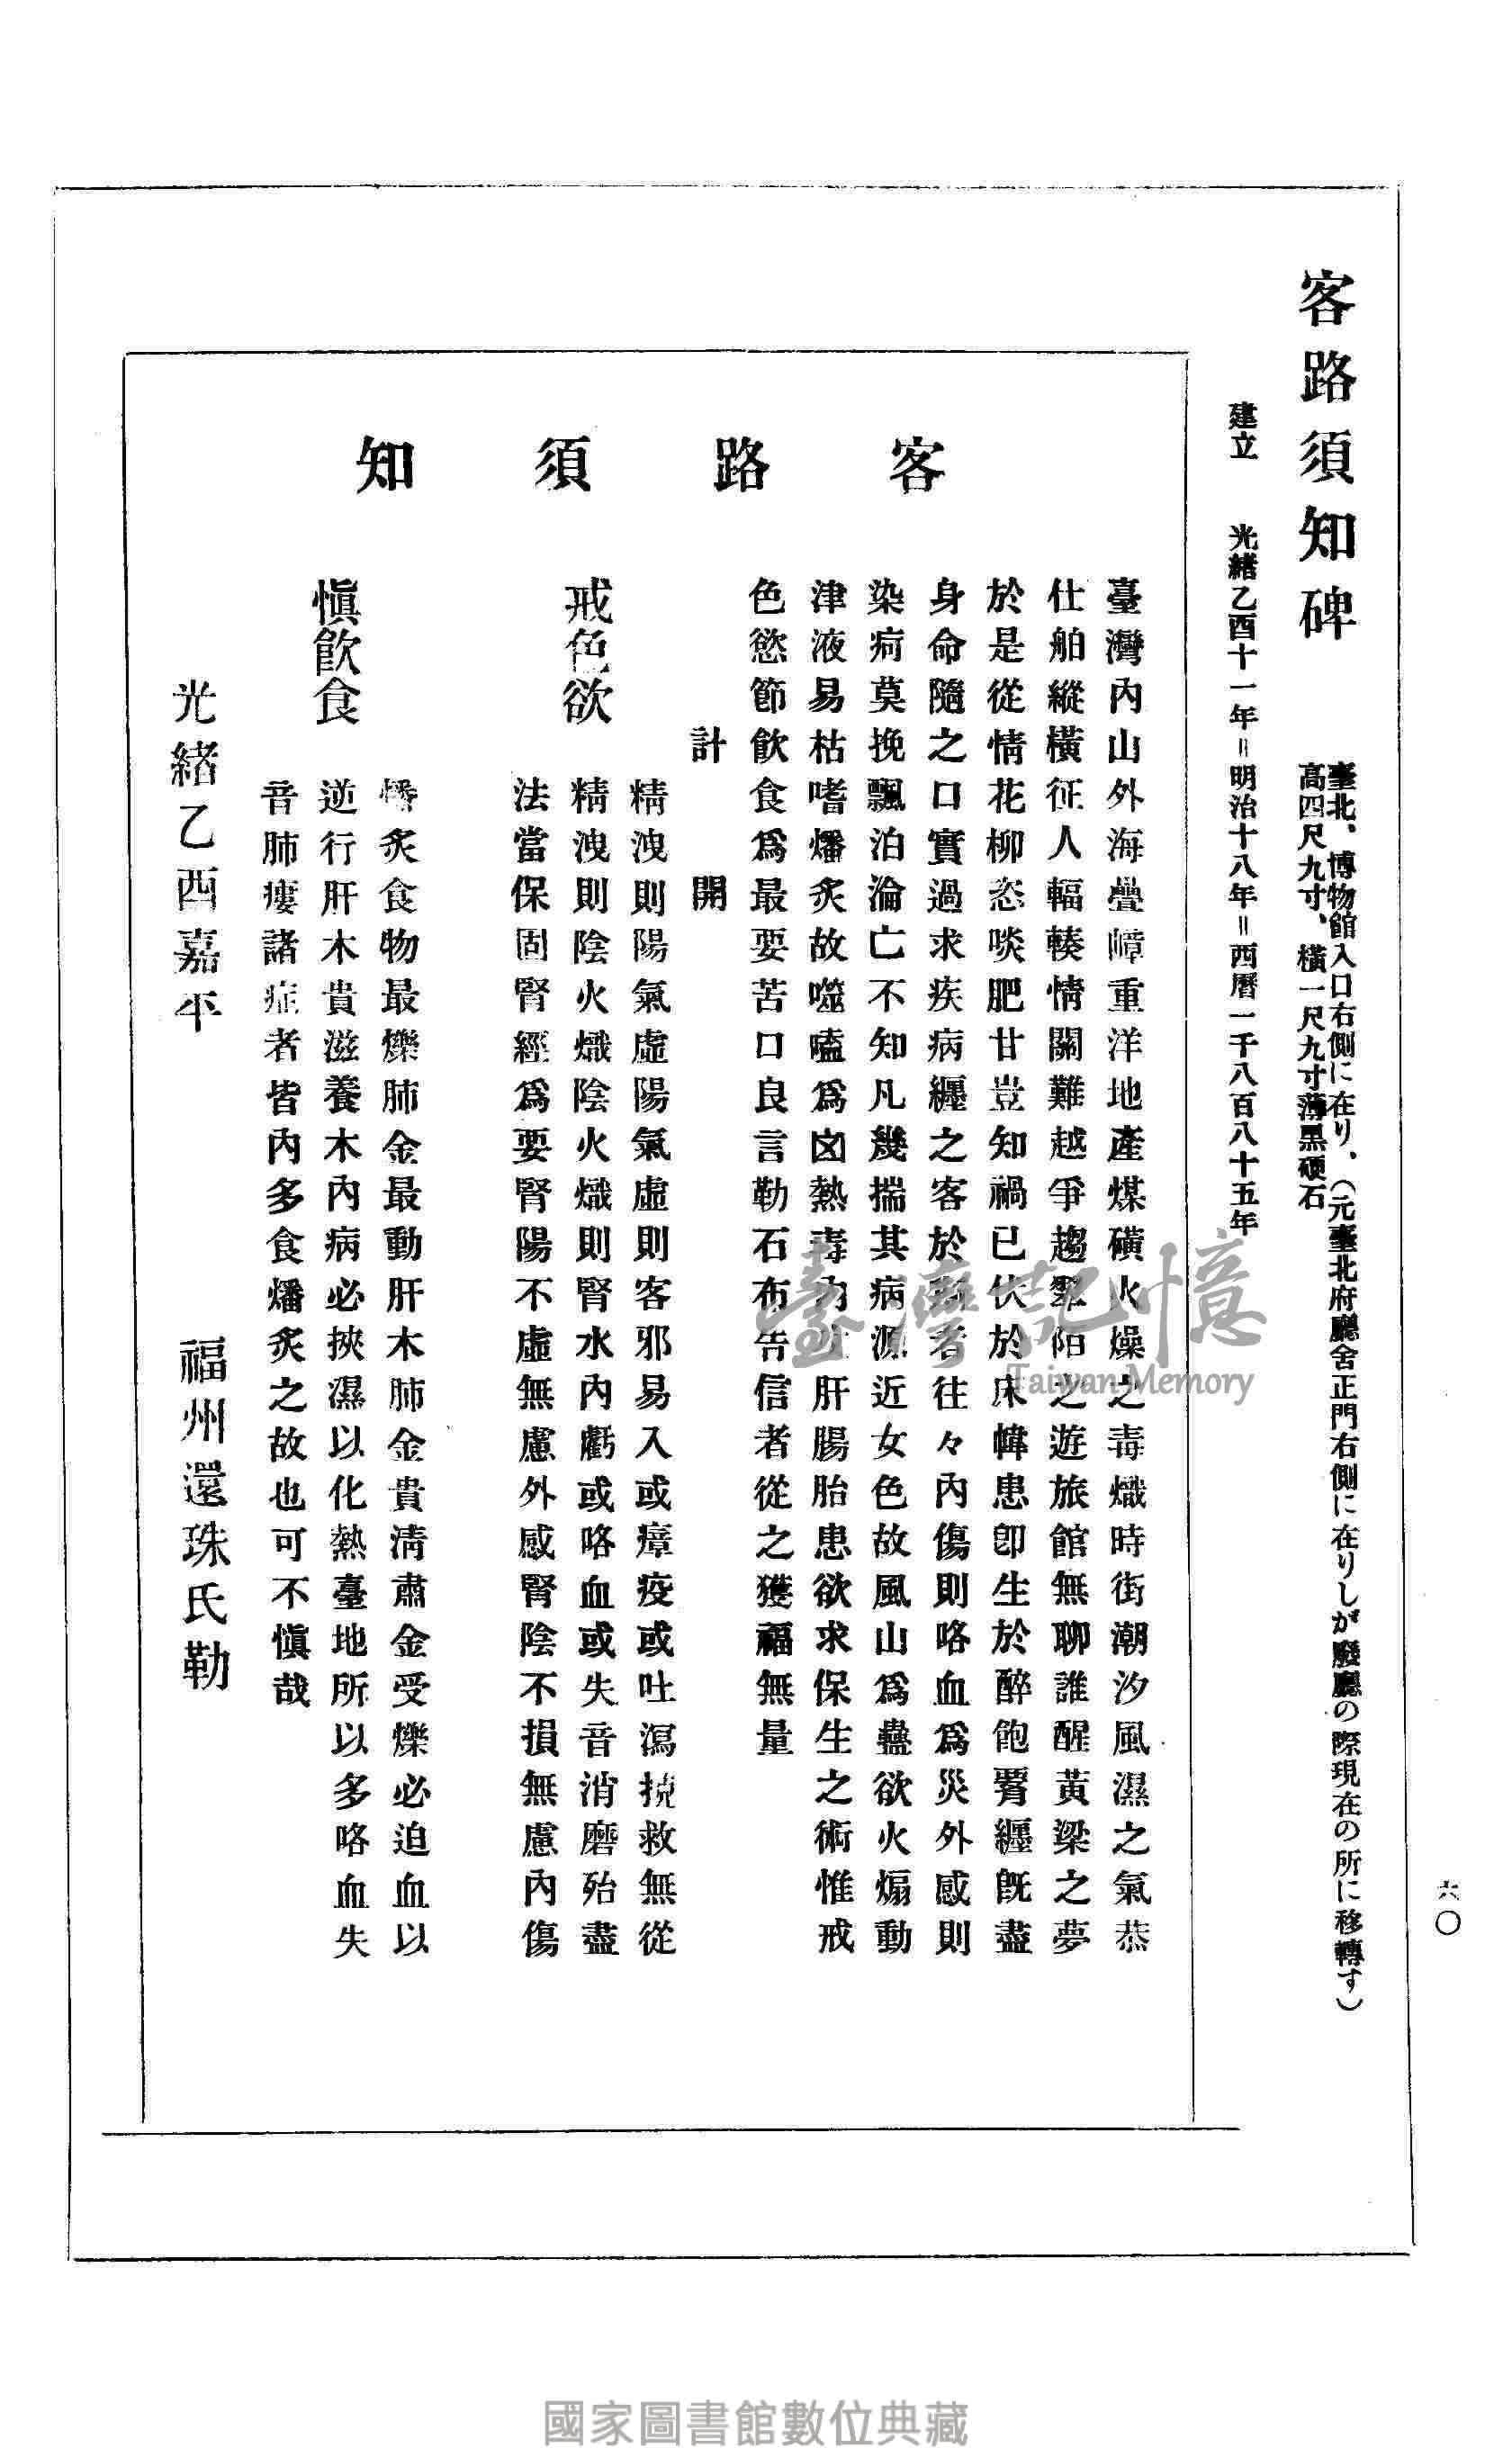 客路須知碑
臺北、博物館入口右側に在り、(元臺北府廳舍正門右側に在りしが廢廳の際現在の所に移轉す)
高四尺九寸、橫一尺九寸薄黑硬石
建立 光緖乙酉十一年=明治十八年=西曆一千八百八十五年
客路須知
臺灣內山外海疊嶂重洋地產煤磺火燥之毒熾時街潮汐風濕之氣恭
仕舶縱橫征人輻輳情關難越爭趨犂陌之遊旅館無聊誰醒黃梁之夢
於是從情花柳恣啖肥甘豈知禍已伏於床幃患卽生於醉飽罥纒旣盡
身命隨之口實過求疾病纒之客於斯者往々內傷則咯血爲災外感則
染疴莫挽飄泊淪亡不知凡幾揣其病源近女色故風山爲蠱欲火煽動
津液易枯嗜燔炙故噬嗑爲凶熱毒內肝腸胎患欲求保生之術惟戒
色慾節飮食爲最要苦口良言勒石布告信者從之獲福無量
計開
戒色欲
精洩則陽氣虛陽氣虛則客邪易入或瘴疫或吐瀉挽救無從
精洩則陰火熾陰火熾則腎水內虧或咯血或失音消磨殆盡
法當保固腎經爲要腎陽不虛無慮外感腎陰不損無慮內傷
愼飮食
燔炙食物最爍肺金最動肝木肺金貴淸肅金受爍必迫血以
逆行肝木貴滋養木內病必挾濕以化熱臺地所以多咯血失
音肺痿諸症者皆內多食燔炙之故也可不愼哉
光緖乙酉嘉平 福州還珠氏勒
六〇
臺灣記憶
Taiwan Memory
國家圖書館數位典藏